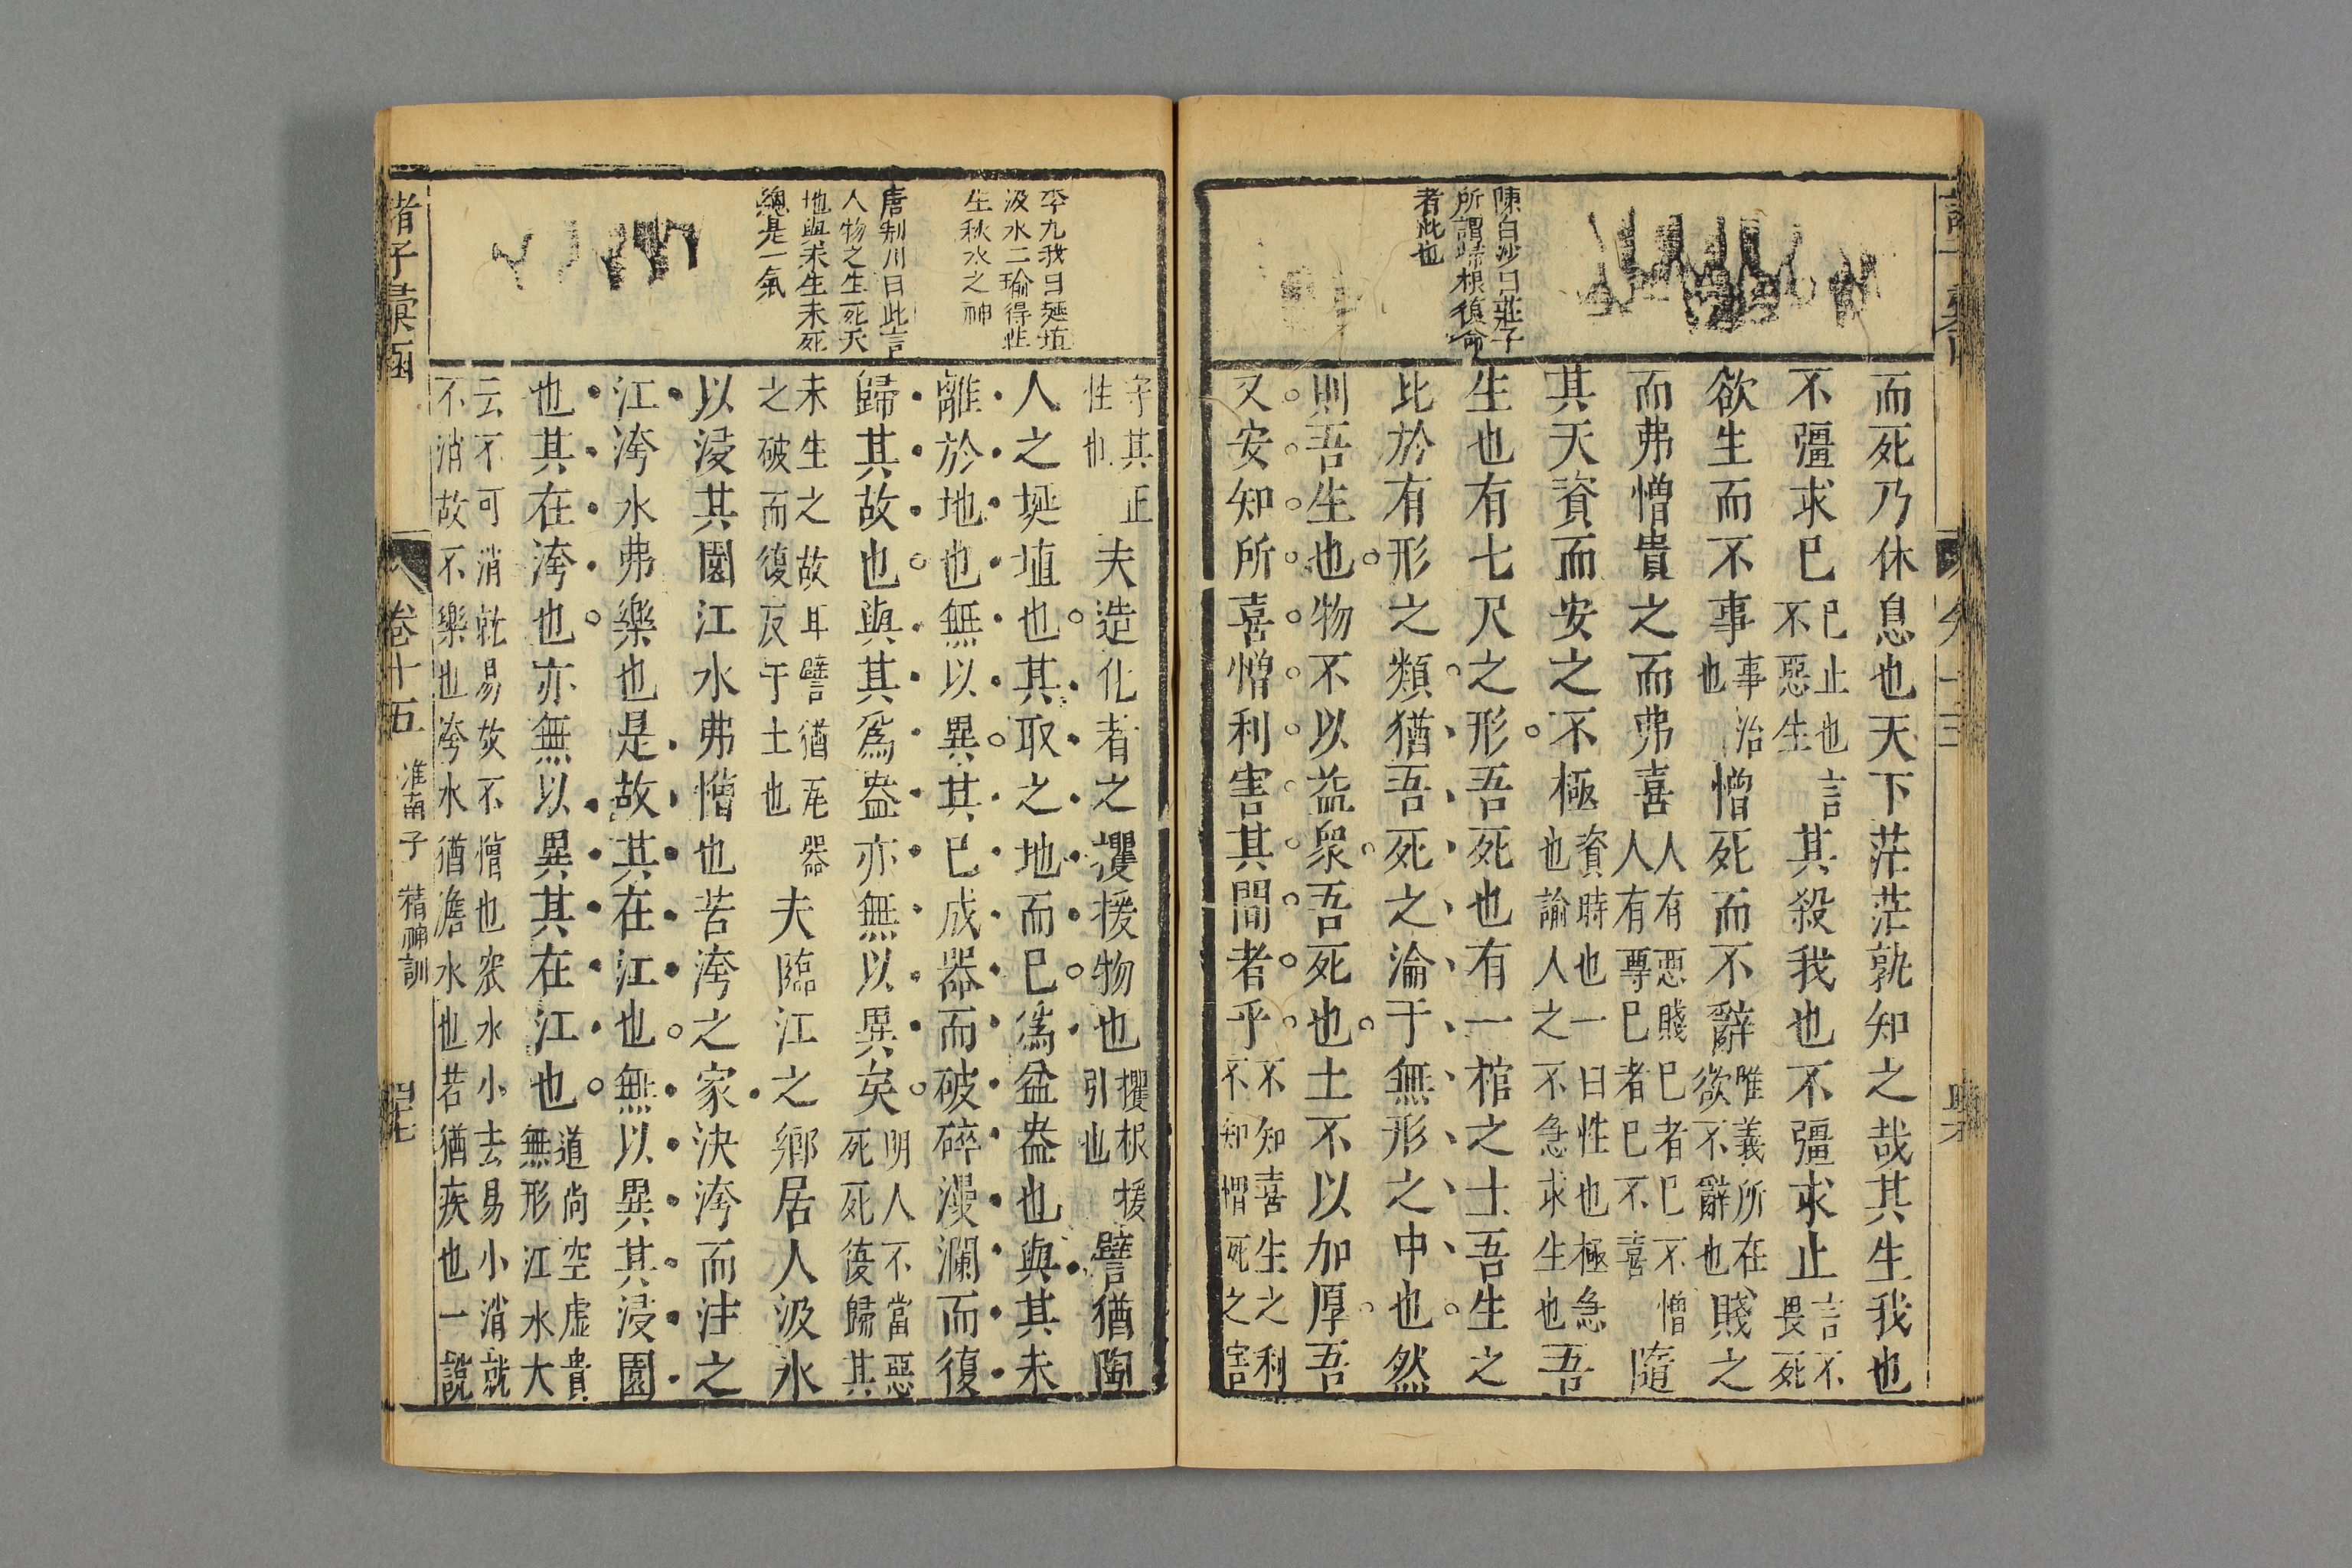 陳白沙曰莊子
所謂歸根復命
者此也
而死乃休息也天下茫茫孰知之哉其生我也
不彊求已已止也言不惡生其殺我也不彊求止言不畏死
欲生而不事事治也憎死而不辭惟義所在欲不辭也賤之
而弗憎貴之而弗喜人有惡賤已者已不憎人有尊已者已不喜隨
其天資而安之不極資時也一曰性也極急也論人之不急求生也吾
生也有七尺之形吾死也有一棺之土吾生之
比於有形之類猶吾死之淪于無形之中也然
則吾生也物不以益衆吾死也土不以加厚吾
又安知所喜憎利害其間者乎不知喜生之利不知憎死之害
李九我曰埏埴
汲水二喻得性
生秋水之神
唐荆川曰此言
人物之生死天
地與未生未死
總是一氣
字其正性也夫造化者之攫援物也攫根援引也譬猶陶
人之埏埴也其取之地而已爲盆盎也與其未
離於地也無以異其已成器而破碎漫瀾而復
歸其故也與其爲盎亦無以異矣明人不當惡死死復歸其
未生之故耳譬猶瓦器之破而復反于土也夫臨江之鄉居人汲水
以浸其園江水弗憎也苦洿之家決洿而注之
江洿水弗樂也是故其在江也無以異其浸園
也其在洿也亦無以異其在江也道尚空虛貴無形江水大
云不可消就易故不憎也洿水小去易小消就
不消故不樂也洿水猶澹水也若猶疾也一說
諸子彙函
卷十五
淮南子
精神訓